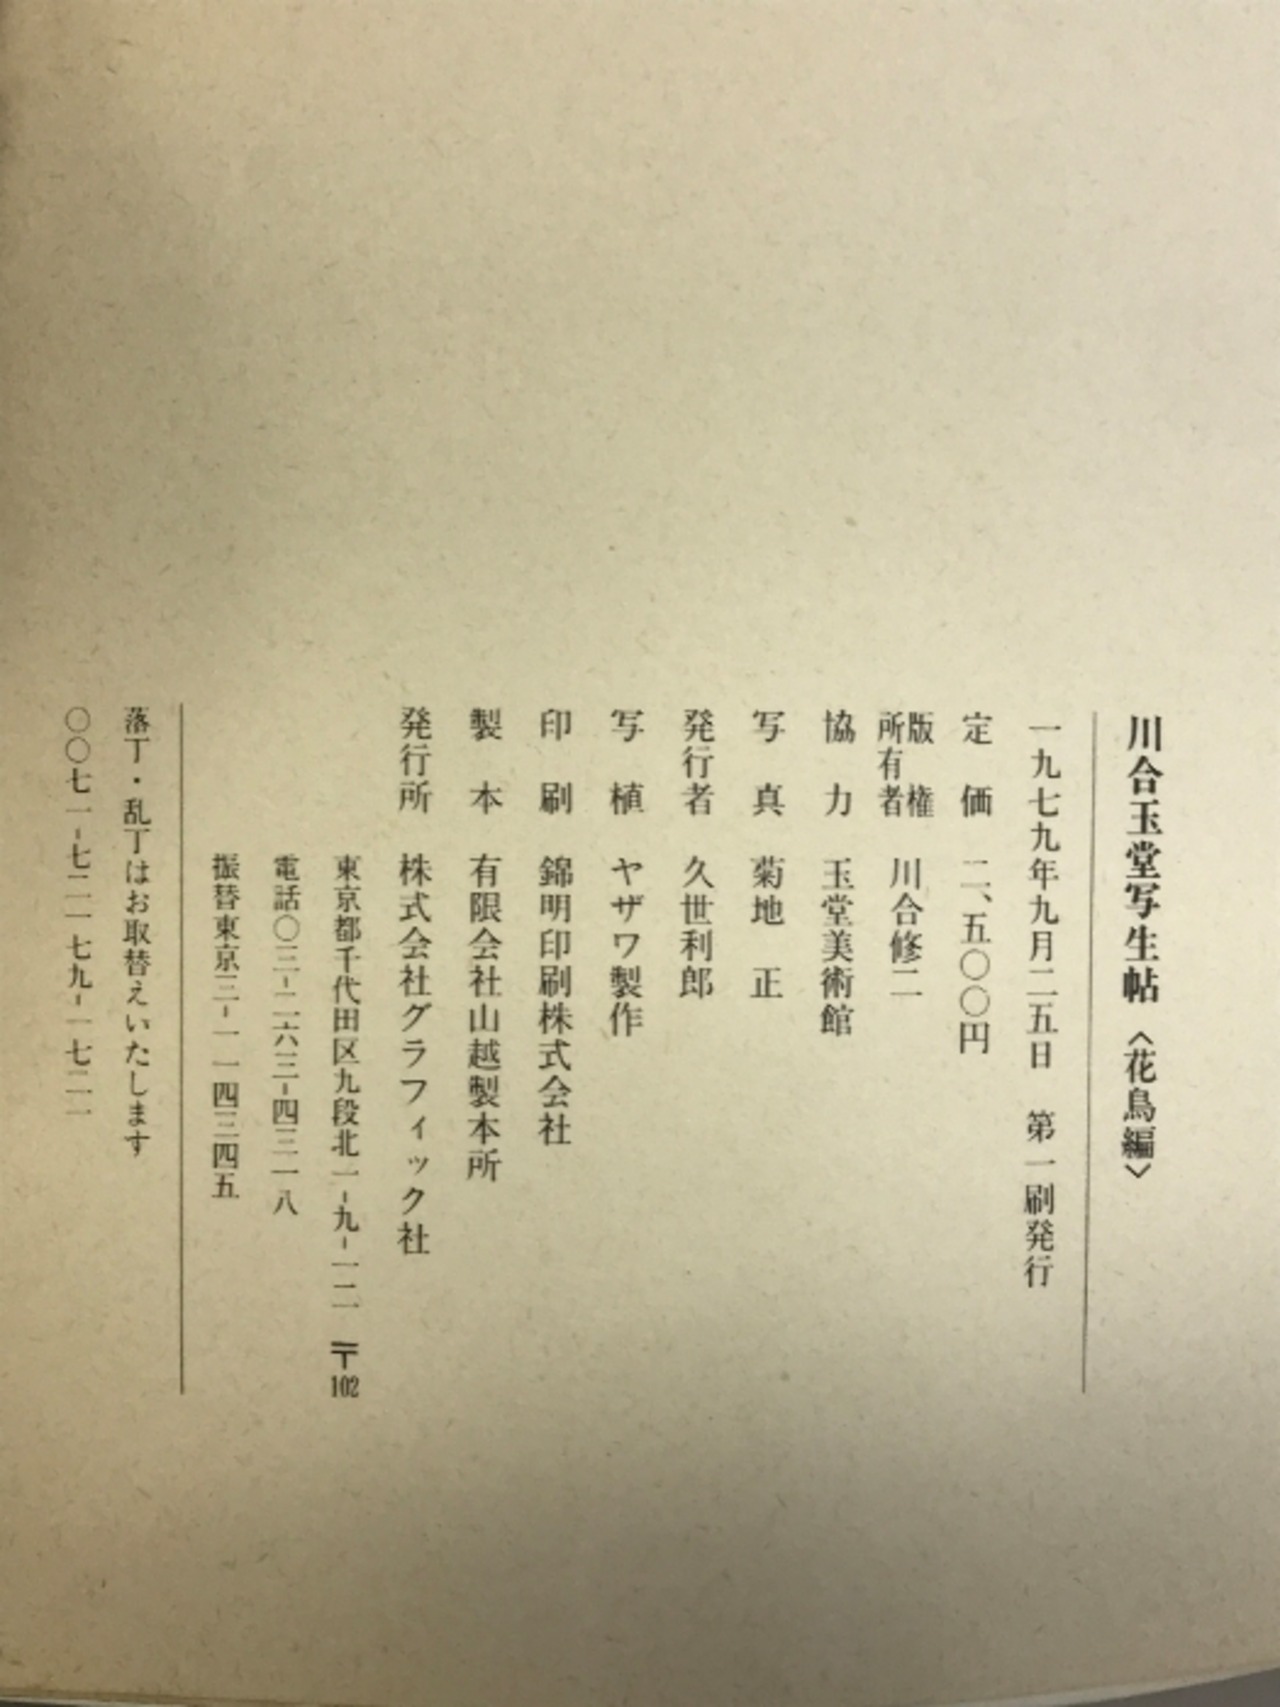 川合玉堂写生帖〈花鳥編〉
一九七九年九月二五日　第一刷発行
定　価　二、五〇〇円
版権所有者　川合修二
協　力　玉堂美術館
写　真　菊地　正
発行者　久世利郎
写　植　ヤザワ製作
印　刷　錦明印刷株式会社
製　本　有限会社山越製本所
発行所　株式会社グラフィック社
東京都千代田区九段北一-九-一二　〒102
電話〇三-二六三-四三一八
振替東京三-一一四三四五
落丁・乱丁はお取替えいたします
〇〇七一-七二一七九-一七二一